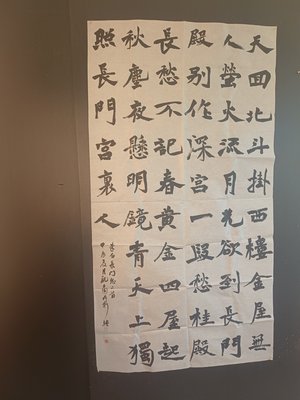 天回北斗掛西樓金屋無
人螢火流月光欲到長門
殿别作深宮一段愁桂殿
長愁不記春黃金四屋起
秋塵夜懸明鏡青天上獨
照長門宮裏人
李白長門怨二首
甲辰夏月